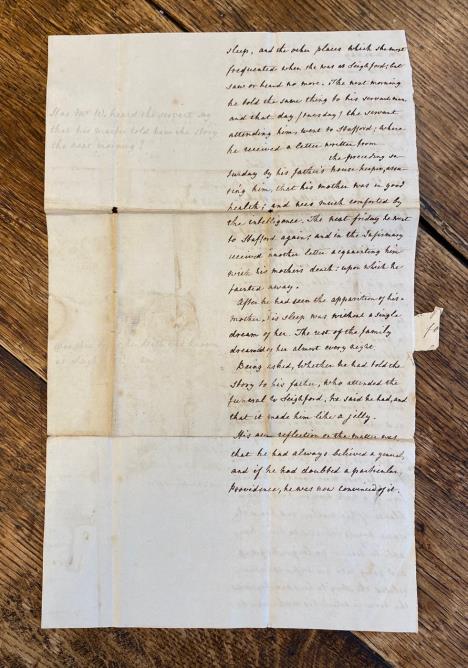 sleep, and the other places which she most
frequented when she was at Seighford; but
saw or heard no more. The next morning
he told the same thing to his servant man,
and that day (tuesday) the servant
attending him, went to Stafford; where
he received a letter written from
the preceding sa-
turday by his father's house keeper, assu-
ring him, that his mother was in good
health; and was much comforted by
the intelligence. The next friday he went
to Stafford again; and in the Infirmary
received another letter acquainting him
with his mothers death: upon which he
fainted away.
After he had seen the apparition of his
mother, his sleep was without a single
dream of her. The rest of the family
dreamed of her almost every night.
Being asked, Whether he had told the
story to his father, who attended the
funeral to Seighford, he said he had, and
that it made him like a jelly.
His own reflection on the matter was
that he had always believed a general,
and if he had doubted a particular
Providence, he was now convinced of it.
Has Mr W. heard the servant say
that his master told him the story
the next morning?